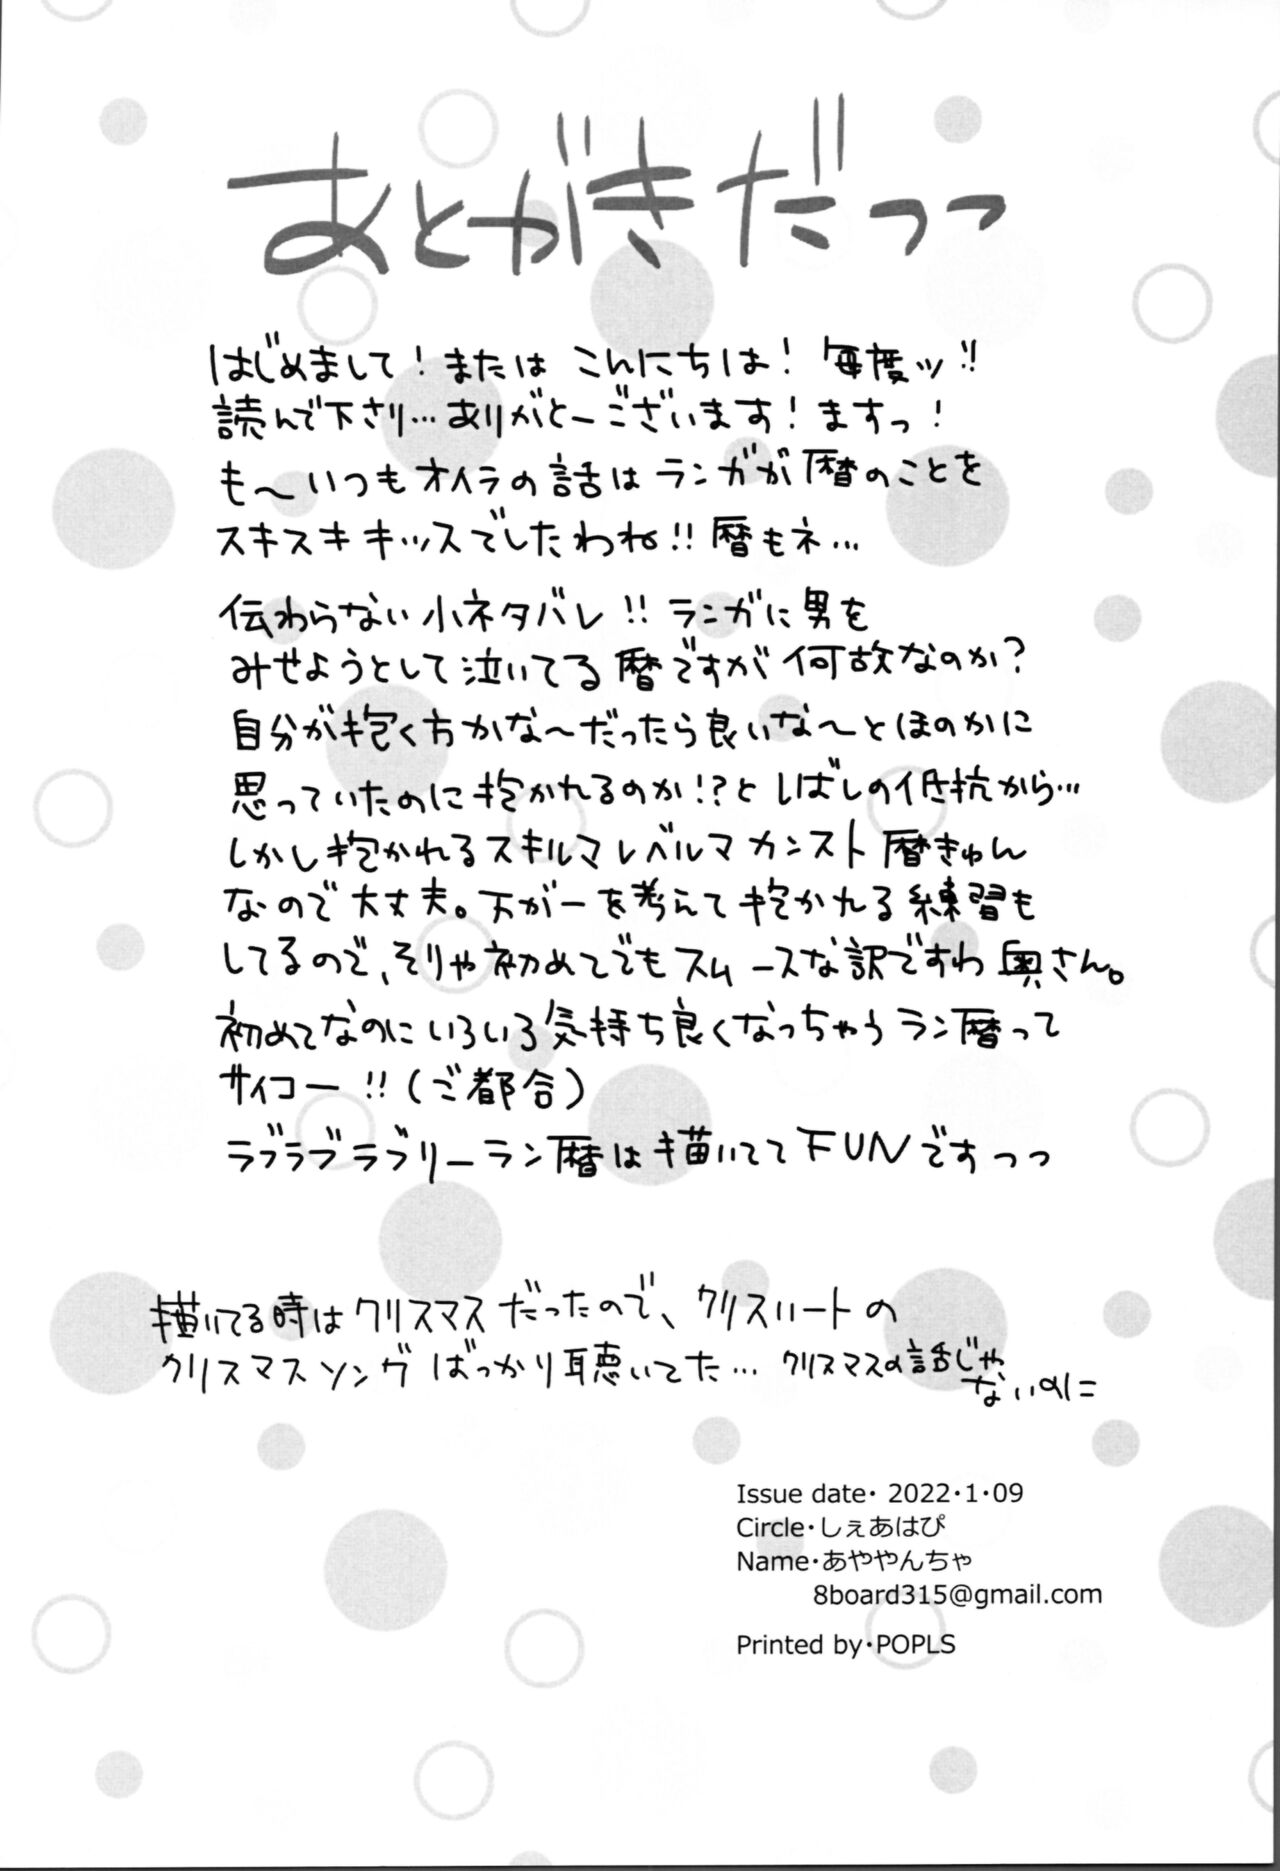 あとがきだっっ
はじめまして!またはこんにちは!毎度ッ!!
読んで下さり…ありがと〜ございます!ますっ!
も〜いつもオイラの話はランガが暦のことを
スキスキキッスでしたわね!!暦もネ…
伝わらない小ネタバレ!!ランガに男を
みせようとして泣いてる暦ですが何故なのか?
自分が抱く方かな〜だったら良いな〜とほのかに
思っていたのに抱かれるのか!?としばしの抵抗から…
しかし抱かれるスキルマレベルマカンスト暦きゅん
なので大丈夫。万が一を考えて抱かれる練習も
してるので、そりゃ初めてでもスムースな訳ですわ奥さん。
初めてなのにいろいろ気持ち良くなっちゃうラン暦って
サイコー!!(ご都合)
ラブラブラブリーラン暦は描いててFUNですっっ
描いてる時はクリスマスだったので、クリスハートの
クリスマスソングばっかり聴いてた…クリスマスの話じゃ
ないのに
Issue date・ 2022・1・09
Circle・しぇあはぴ
Name・あややんちゃ
8board315@gmail.com
Printed by・POPLS